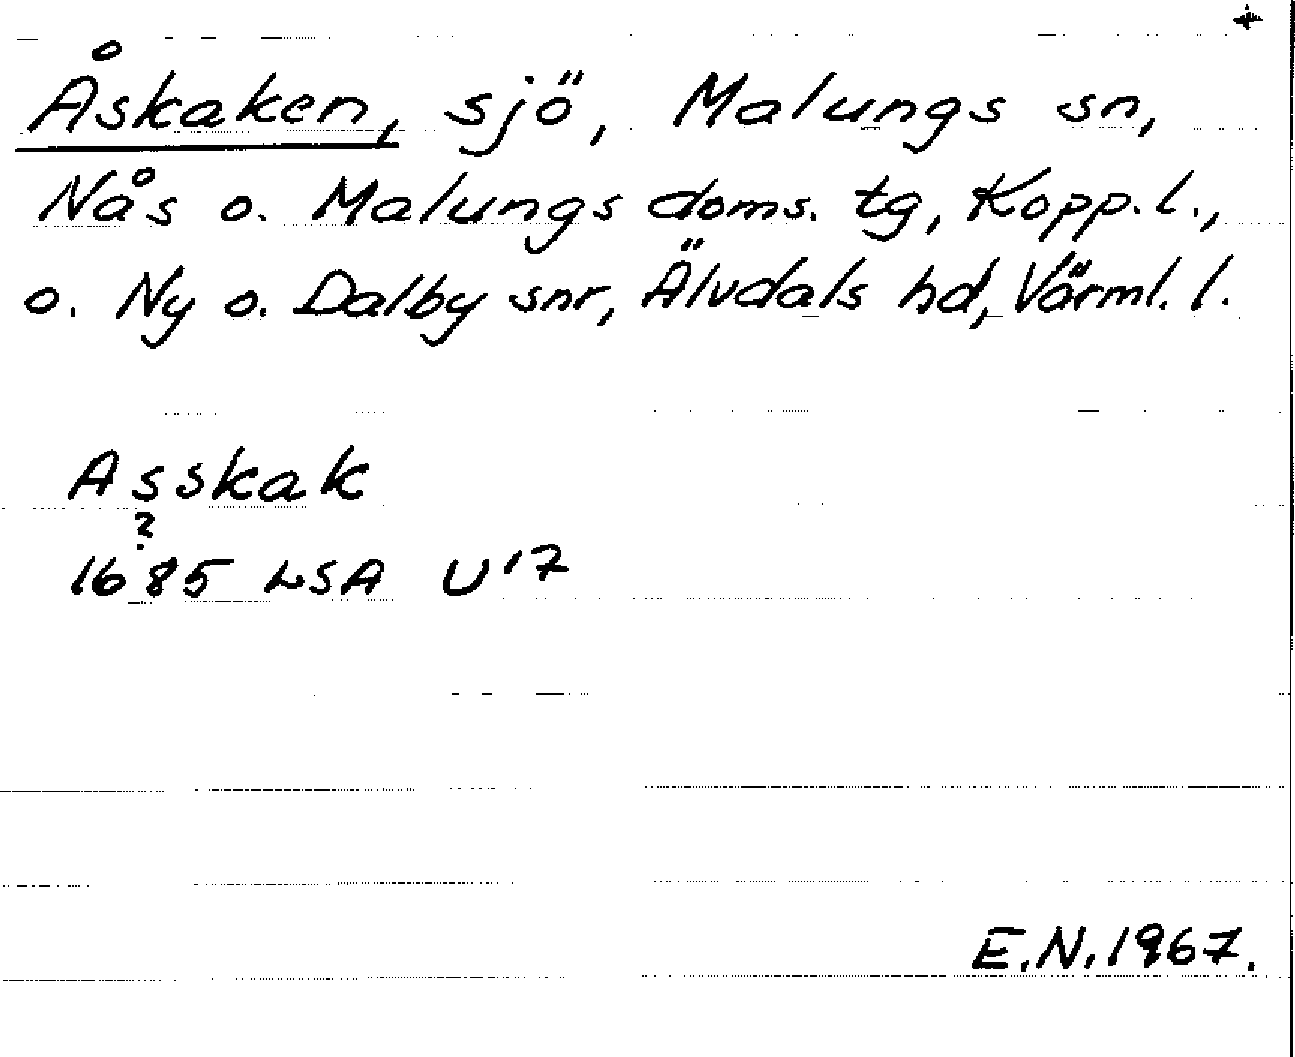 Åskaken, sjö, Malungs sn,
Nås o. Malungs doms. tg, Kopp. l.,
o. Ny o. Dalby snr, Älvdals hd, Värml. l.
Asskak
?
1685 LSA U'7
E.N. 1967.